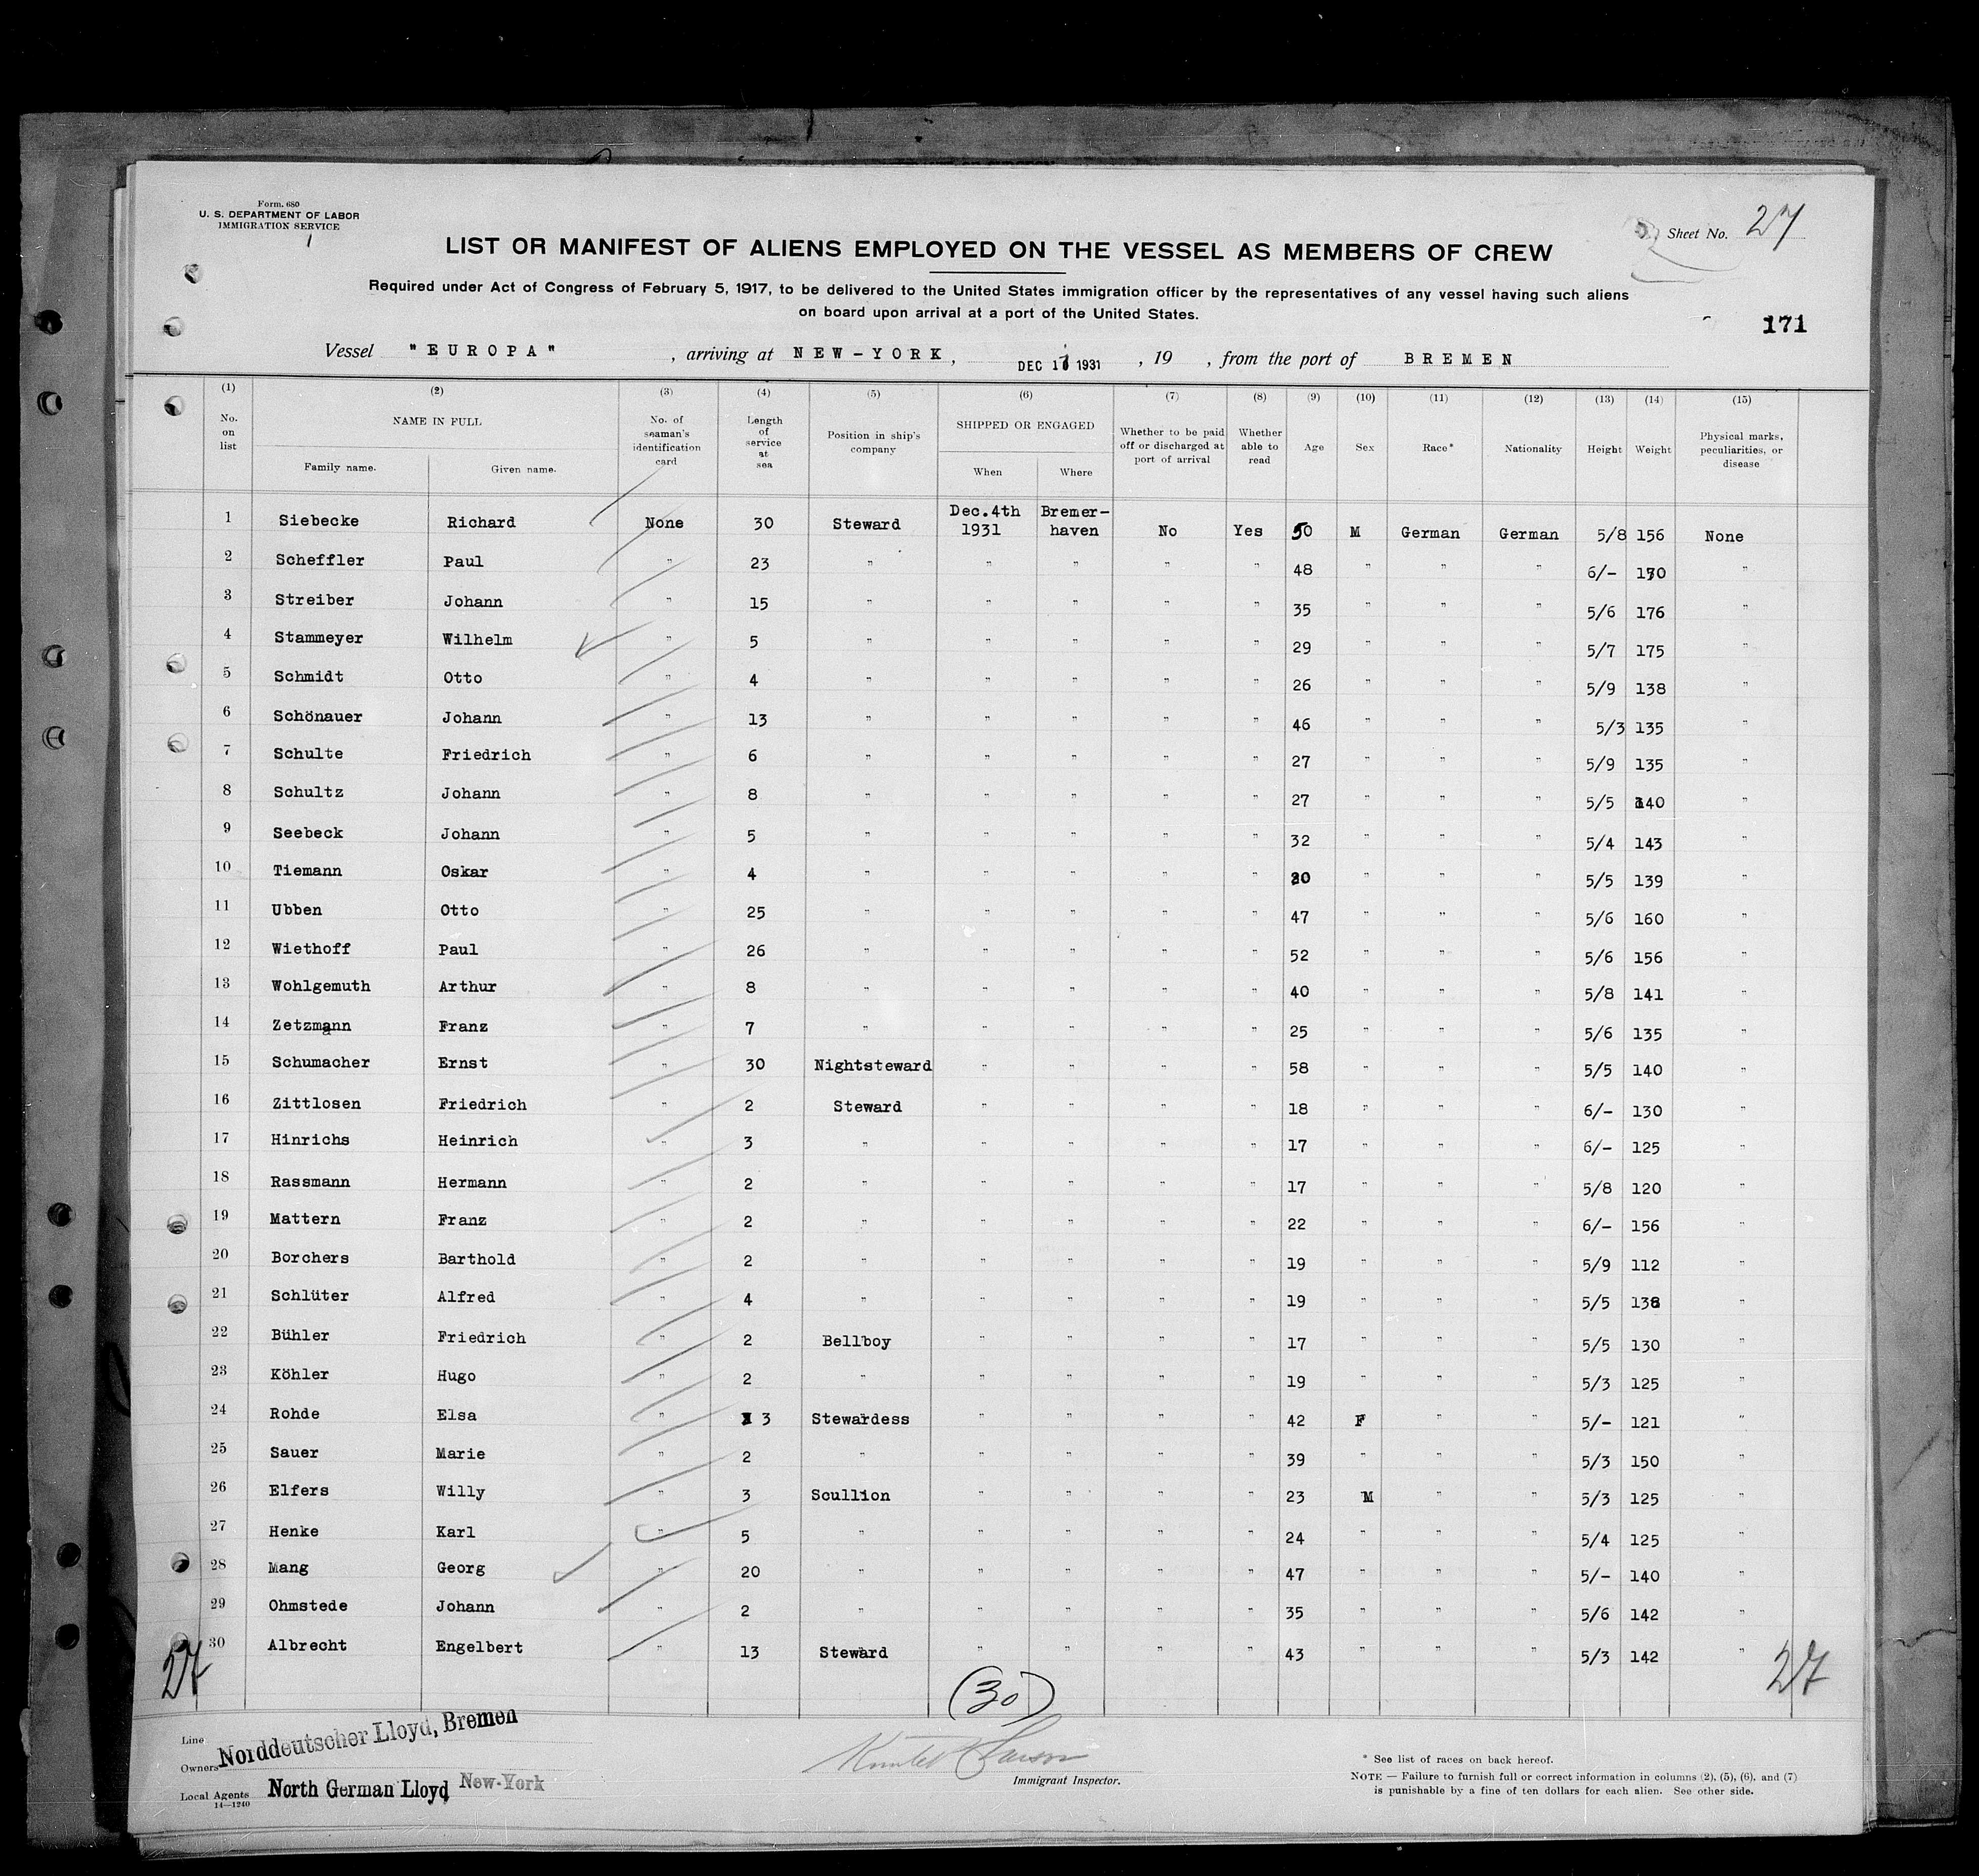 Form. 680
U. S. DEPARTMENT OF LABOR
IMMIGRATION SERVICE
Sheet No. 27
LIST OR MANIFEST OF ALIENS EMPLOYED ON THE VESSEL AS MEMBERS OF CREW
Required under Act of Congress of February 5, 1917, to be delivered to the United States immigration officer by the representatives of any vessel having such aliens
on board upon arrival at a port of the United States.
171
Vessel "EUROPA" , arriving at NEW-YORK, DEC 1 1931 , 19 , from the port of BREMEN
(1) (2) (3) (4) (5) (6) (7) (8) (9) (10) (11) (12) (13) (14) (15)
No. on list NAME IN FULL Family name. Given name. No. of seaman's identification card Length of service at sea Position in ship's company SHIPPED OR ENGAGED When Where Whether to be paid off or discharged at port of arrival Whether able to read Age Sex Race* Nationality Height Weight Physical marks, peculiarities, or disease
1 Siebecke Richard None 30 Steward Dec.4th 1931 Bremer-haven No Yes 50 M German German 5/8 156 None
2 Scheffler Paul " 23 " " " " " 48 " " " 6/- 170 "
3 Streiber Johann " 15 " " " " " 35 " " " 5/6 176 "
4 Stammeyer Wilhelm " 5 " " " " " 29 " " " 5/7 175 "
5 Schmidt Otto " 4 " " " " " 26 " " " 5/9 138 "
6 Schönauer Johann " 13 " " " " " 46 " " " 5/3 135 "
7 Schulte Friedrich " 6 " " " " " 27 " " " 5/9 135 "
8 Schultz Johann " 8 " " " " " 27 " " " 5/5 140 "
9 Seebeck Johann " 5 " " " " " 32 " " " 5/4 143 "
10 Tiemann Oskar " 4 " " " " " " " " 5/5 139 "
11 Ubben Otto " 25 " " " " " 47 " " " 5/6 160 "
12 Wiethoff Paul " 26 " " " " " 52 " " " 5/6 156 "
13 Wohlgemuth Arthur " 8 " " " " " 40 " " " 5/8 141 "
14 Zetzmann Franz " 7 " " " " " 25 " " " 5/6 135 "
15 Schumacher Ernst " 30 Nightsteward " " " " 58 " " " 5/5 140 "
16 Zittlosen Friedrich " 2 Steward " " " " 18 " " " 6/- 130 "
17 Hinrichs Heinrich " 3 " " " " " 17 " " " 6/- 125 "
18 Rassmann Hermann " 2 " " " " " 17 " " " 5/8 120 "
19 Mattern Franz " 2 " " " " " 22 " " " 6/- 156 "
20 Borchers Barthold " 2 " " " " " 19 " " " 5/9 112 "
21 Schlüter Alfred " 4 " " " " " 19 " " " 5/5 138 "
22 Bühler Friedrich " 2 Bellboy " " " " 17 " " " 5/5 130 "
23 Köhler Hugo " 2 " " " " " 19 " " " 5/3 125 "
24 Rohde Elsa " 3 Stewardess " " " " 42 F " " 5/- 121 "
25 Sauer Marie " 2 " " " " " 39 " " " 5/3 150 "
26 Elfers Willy " 3 Scullion " " " " 23 M " " 5/3 125 "
27 Henke Karl " 5 " " " " " 24 " " " 5/4 125 "
28 Mang Georg " 20 " " " " " 47 " " " 5/- 140 "
29 Ohmstede Johann " 2 " " " " " 35 " " " 5/6 142 "
30 Albrecht Engelbert " 13 Steward " " " " 43 " " " 5/3 142 "
27 (30) 27
Line
Owners Norddeutscher Lloyd, Bremen
Local Agents North German Lloyd New-York
14—1240
Immigrant Inspector.
* See list of races on back hereof.
NOTE — Failure to furnish full or correct information in columns (2), (5), (6), and (7)
is punishable by a fine of ten dollars for each alien. See other side.